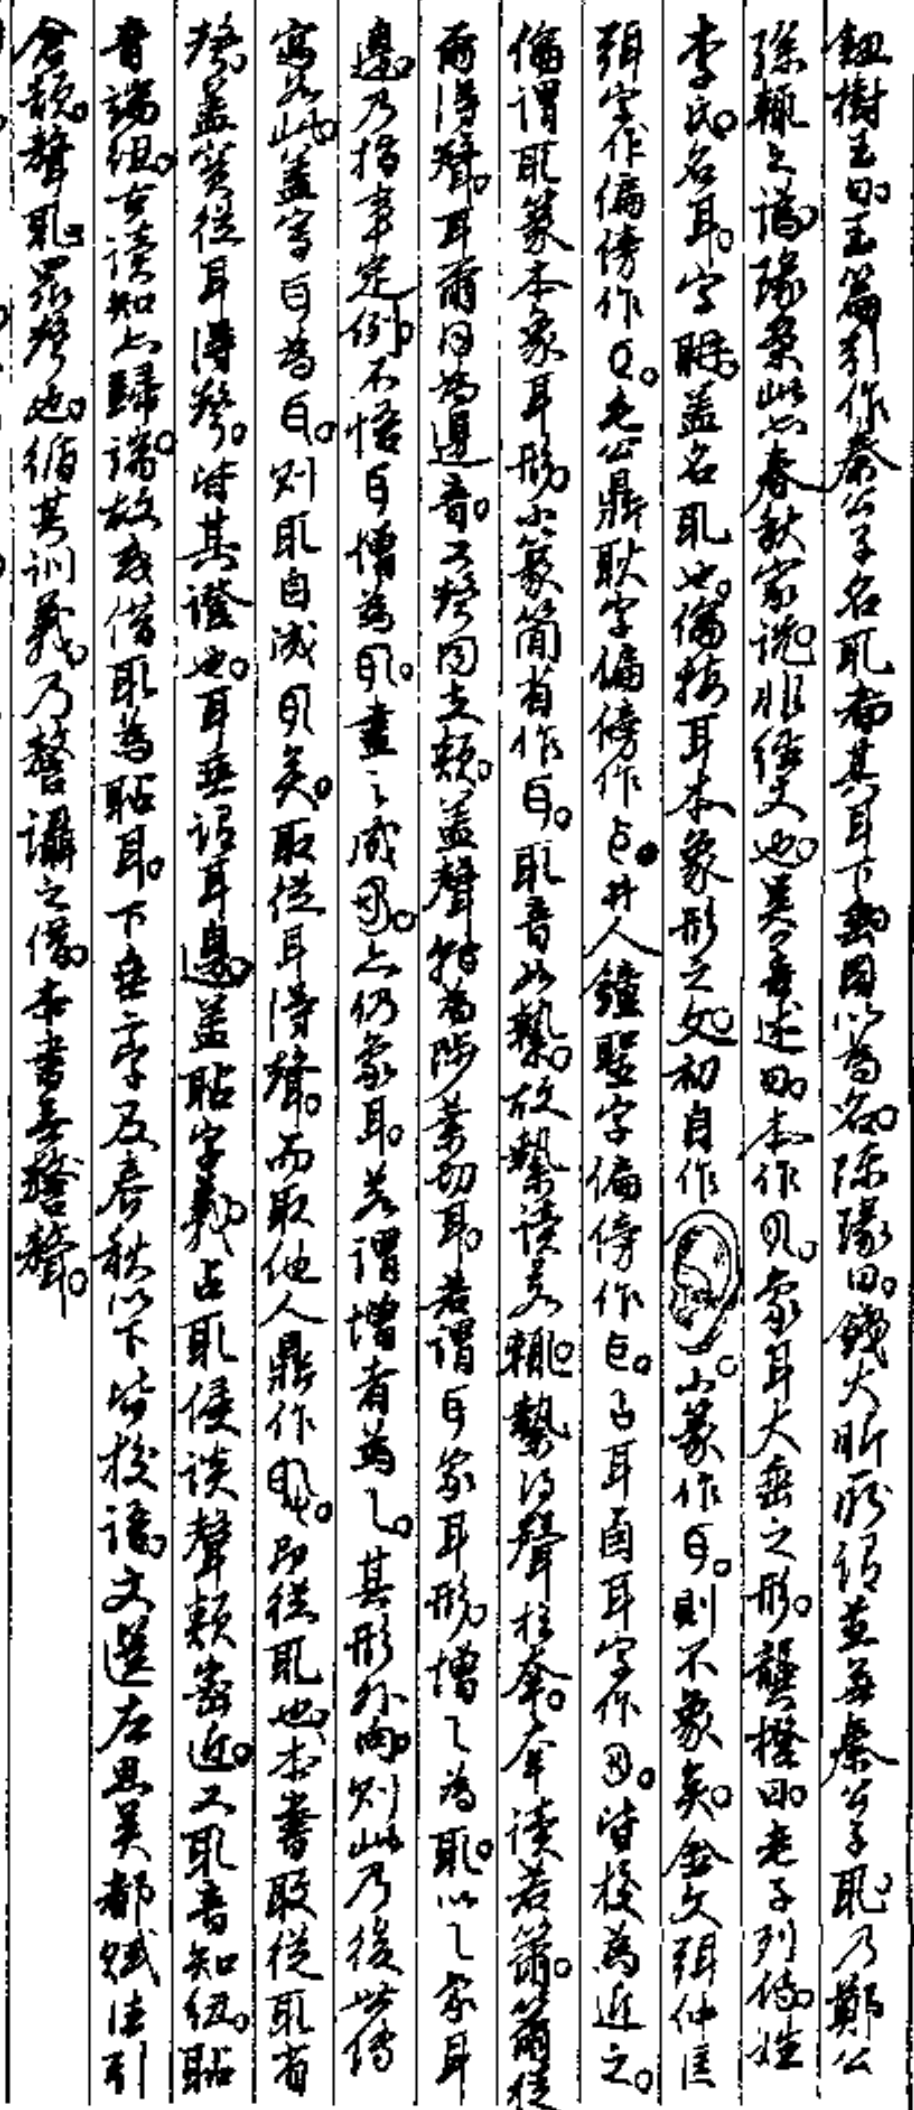 鈕樹玉曰。玉篇引作秦公子名耴者其耳下垂因以爲名。陈瑑曰。錢大昕所謂並無秦公子耴乃鄭公
孫輒之譌。瑑案此亦春秋家說。非經文也。吳善述曰。本作。象耳大垂之形。龔橙曰。老子列傳。姓
李氏。名耳。字耼。蓋名耴也。倫按耳本象形之文。初自作。小篆作。則不象矣。金文弭仲匡
弭字作偏傍作。毛公鼎耿字偏傍作。井人鐘聖字偏傍作。耳卣耳字作。皆校爲近之。
倫謂耴篆本象耳形。小篆簡省作。耴音如縶。故縶讀若輒。縶得聲於㚔。㚔讀若籋。籋從
爾得聲。耳爾同爲邊音。又聲同之類。蓋聲轉爲陟葉切耳。若謂象耳形。增乚爲耴。以乚象耳
邊。乃指事定例。不悟增爲。畫之成。亦仍象耳。若謂增者爲乚。其形外向。則此乃後世傳
寫如此。蓋寫爲。則耴自成矣。取從耳得聲。而取他人鼎作。即從耴也。本書取從耴省
聲。蓋實從耳得聲。皆其證也。耳垂謂耳邊。蓋聑字義。占耴侵談聲類甚近。又耴音知紐。聑
音端紐。古讀知亦歸端。故或借耴爲聑耳。下垂二字及春秋以下皆校語。文選左思吳都賦注引
倉頡。聱耴。眾聲也。循其訓義。乃謷讘之借。本書無聱聲。